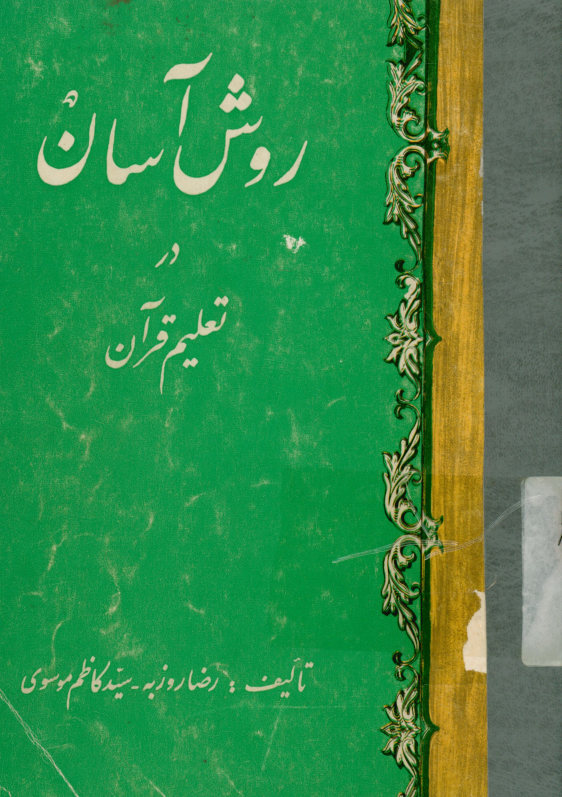 روش آسان
در
تعلیم قرآن
تألیف : رضا روزبه - سیّد کاظم موسوی